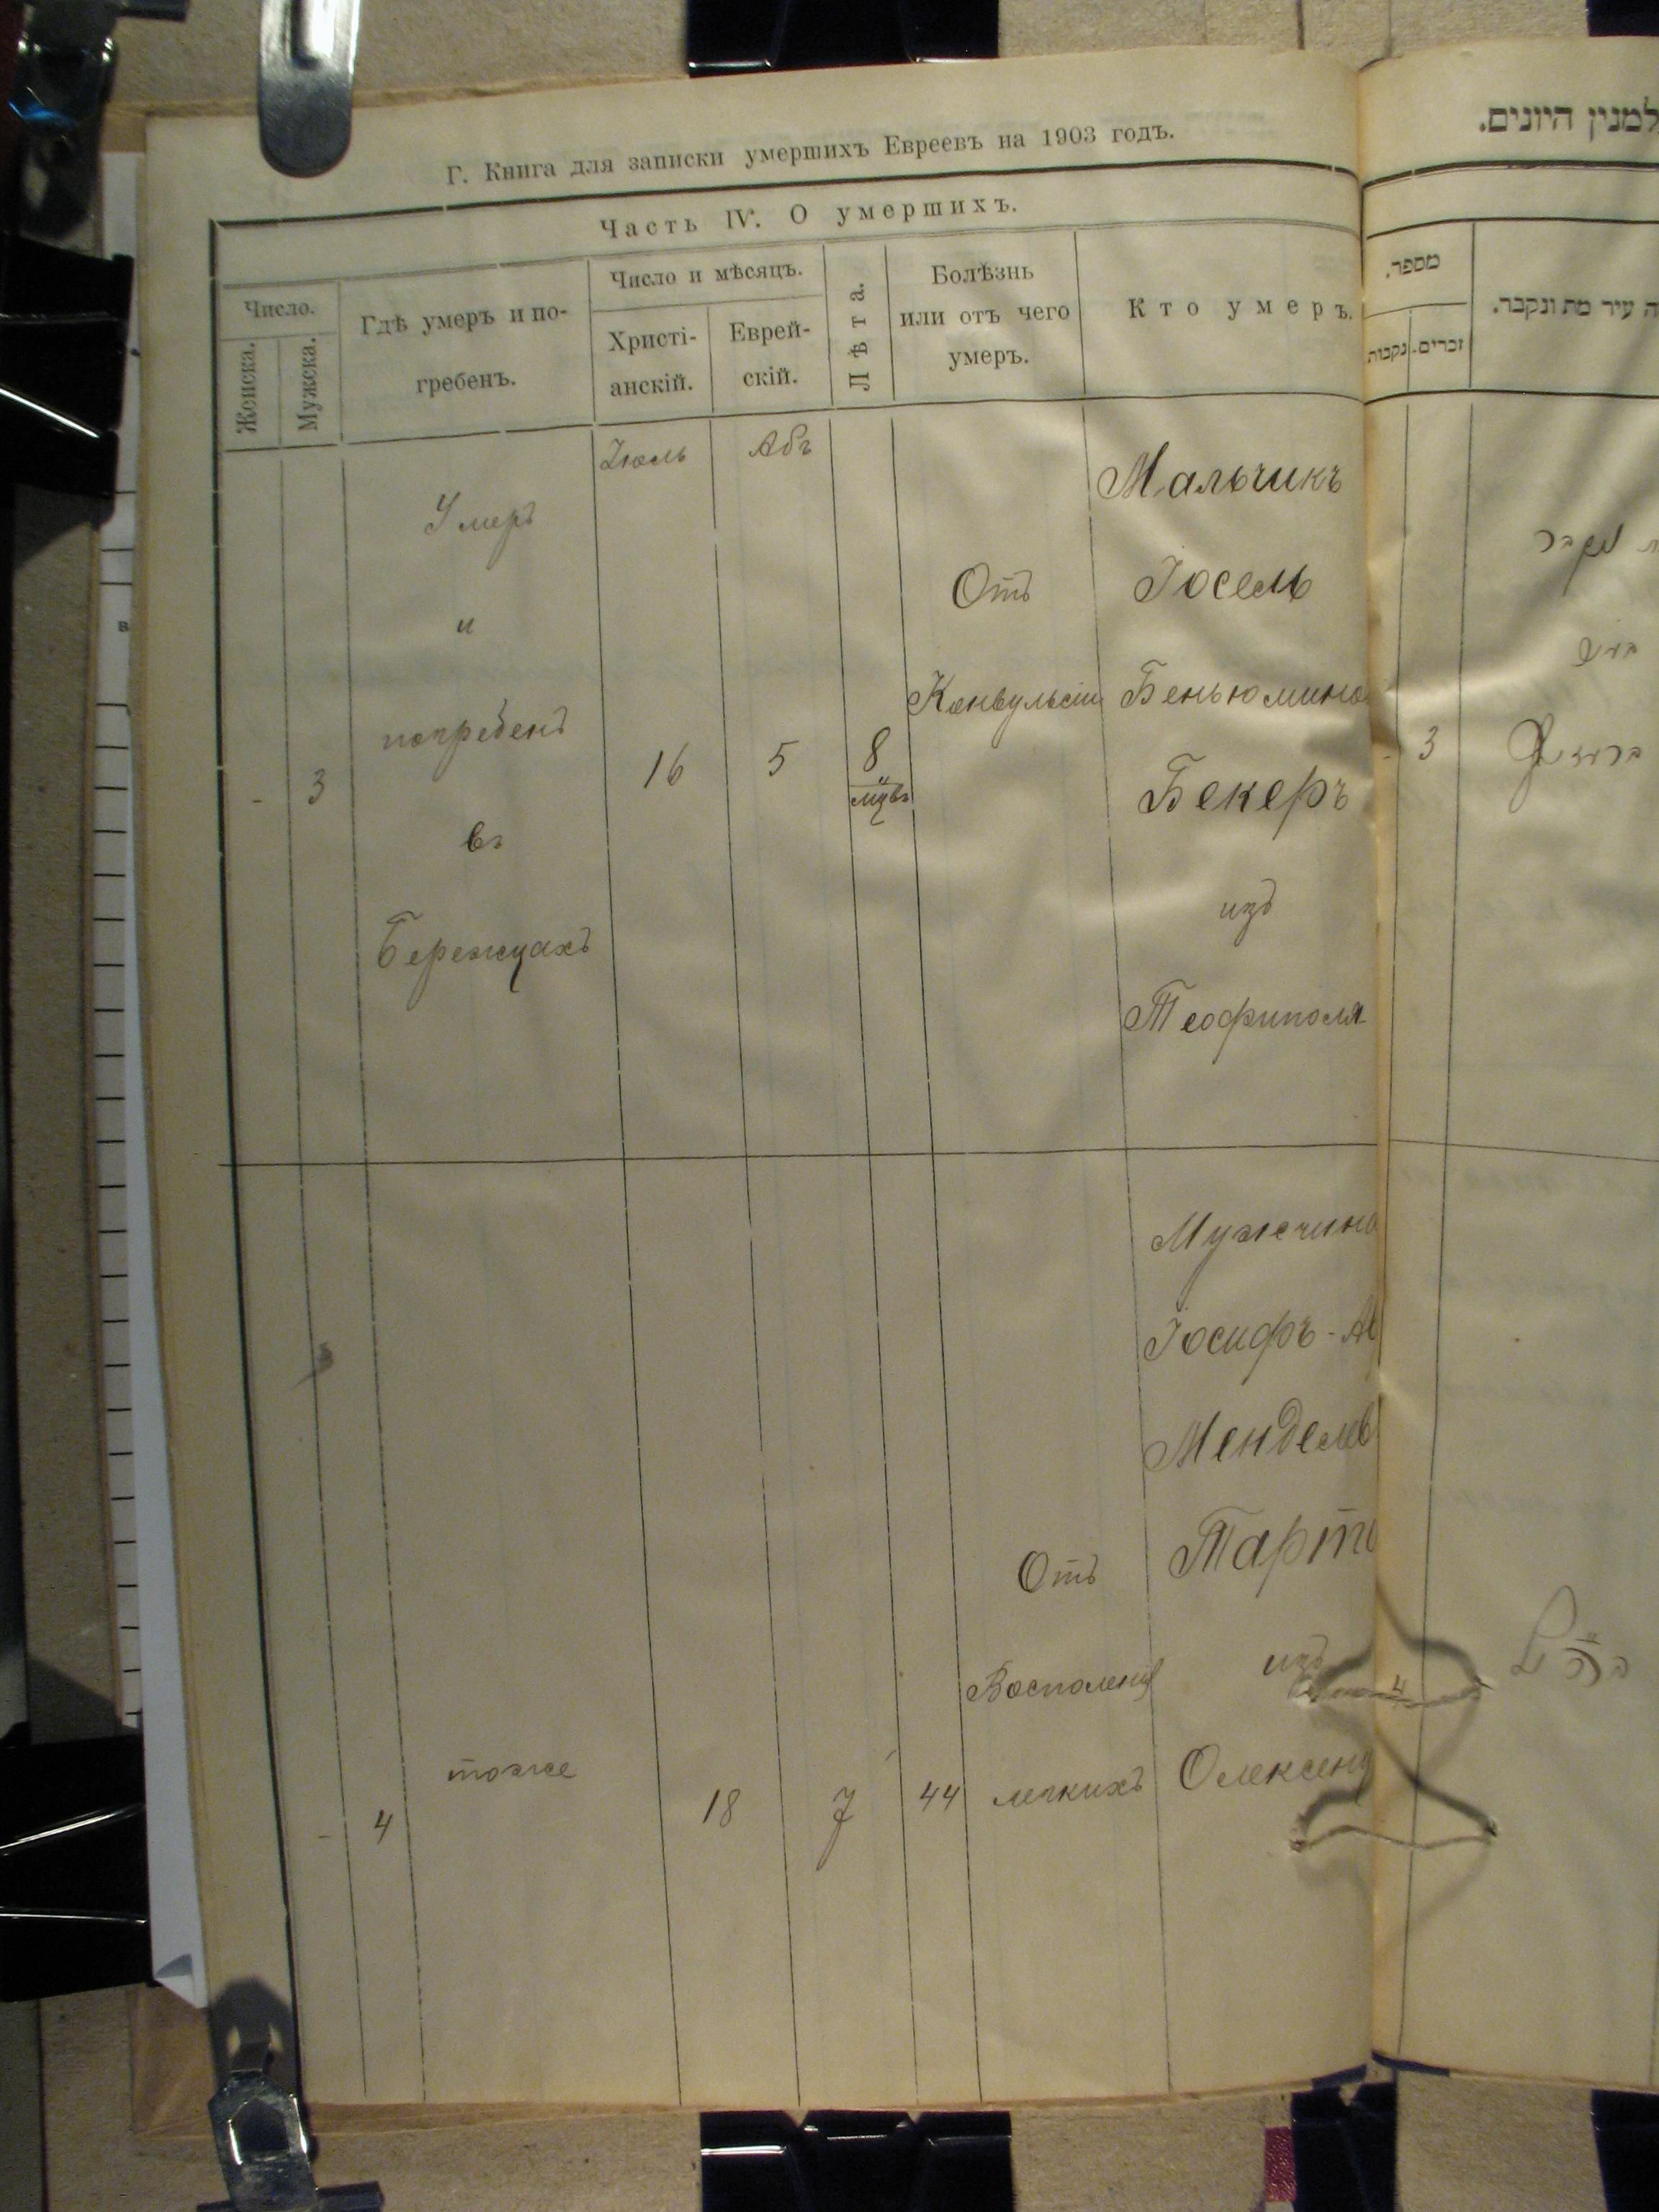 Г. Книга для записки умершихъ Евреевъ на 1903 годъ.
Часть IV. О умершихъ.
Число.
Женска.
Мужска.
Гдѣ умеръ и по-
гребенъ.
Число и мѣсяцъ.
Христі-
анскій.
Еврей-
скій.
Лѣта.
Болѣзнь
или отъ чего
умеръ.
Кто умеръ.
Іюль
Абъ
-
3
Умеръ
и
погребенъ
въ
Бережцахъ
16
5
8
мцвъ
Отъ
Конвульсіи
Мальчикъ
Іосель
Беньюмино
Бекеръ
изъ
Теофиполя
-
4
тоже
18
7
44
Отъ
Восполенія
легкихъ
Мужчина
Іосифъ - Ав
Менделев
Тарто
изъ
Олексенц
למנין היונים.
מספר.
נקבות
זכרים.
ה עיר מת ונקבר.
-
3
4